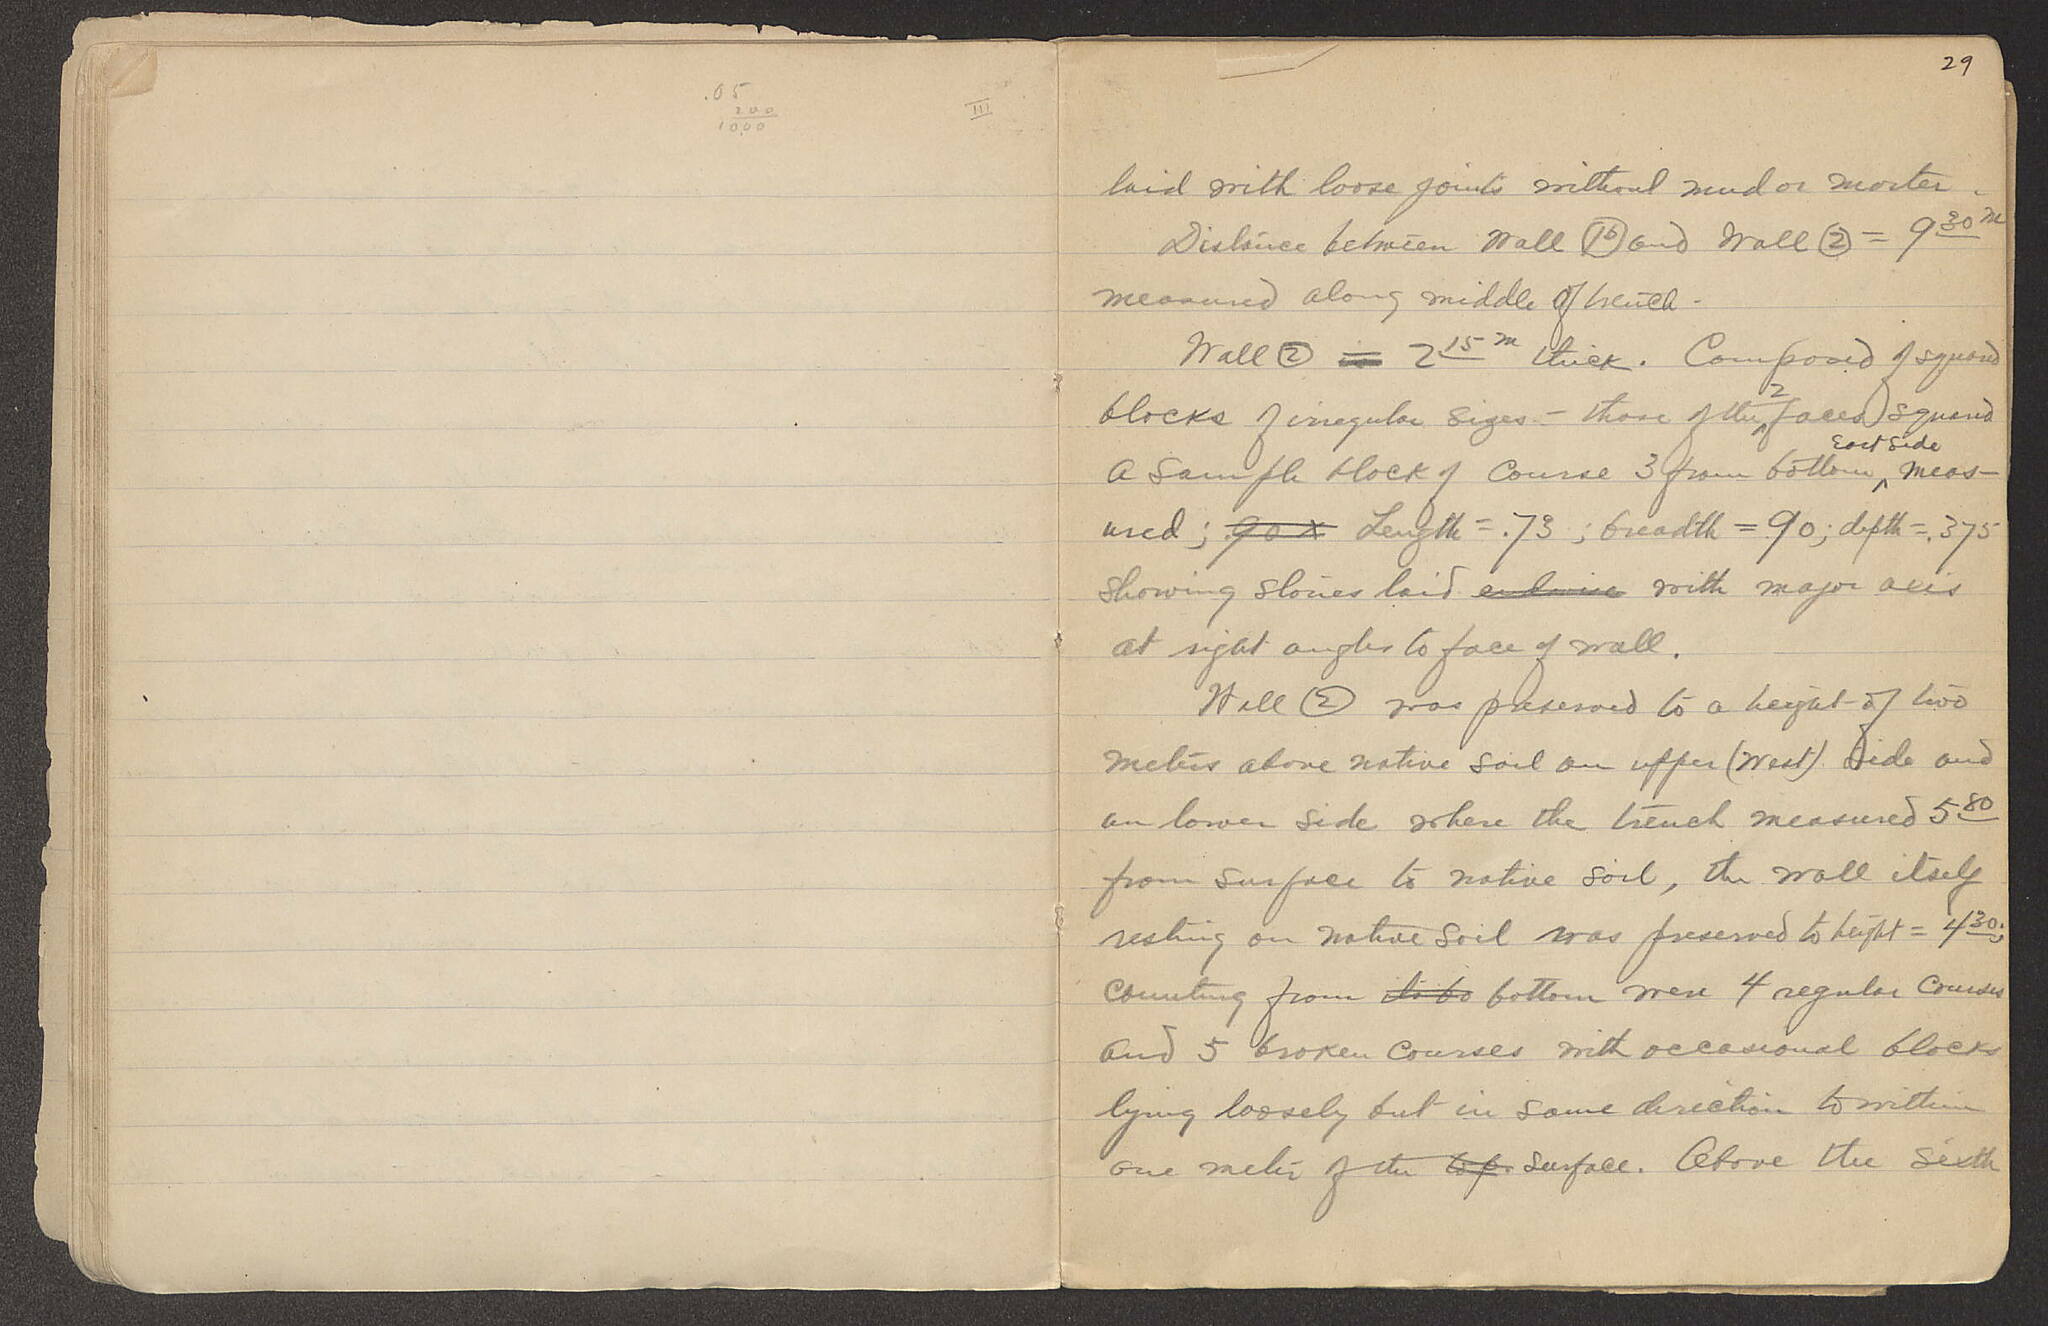 .05
200
10.00
III
29
laid with loose joints without mud or morter.
Distance between Wall (1b) and Wall (2) = 9 30 m
measured along middle of trench -
Wall (2) = 2 15 m thick. Composed of squared
blocks of irregular sizes - those of the ^ 2 faces squared
A sample block of course 3 from bottom ^ East Side meas-
ured; .90 x Length = .73; breadth = .90; depth = .375
showing stones laid endwise with major axis
at right angles to face of wall.
Wall (2) was preserved to a height of two
meters above native soil on upper (West) side and
on lower side where the trench measured 5 80
from surface to native soil, the wall itself
resting on native soil was preserved to height = 4 30;
Counting from its bo bottom were 4 regular courses
and 5 broken courses with occasional blocks
lying loosely but in same direction to within
one meter of the top surface. Above the sixth